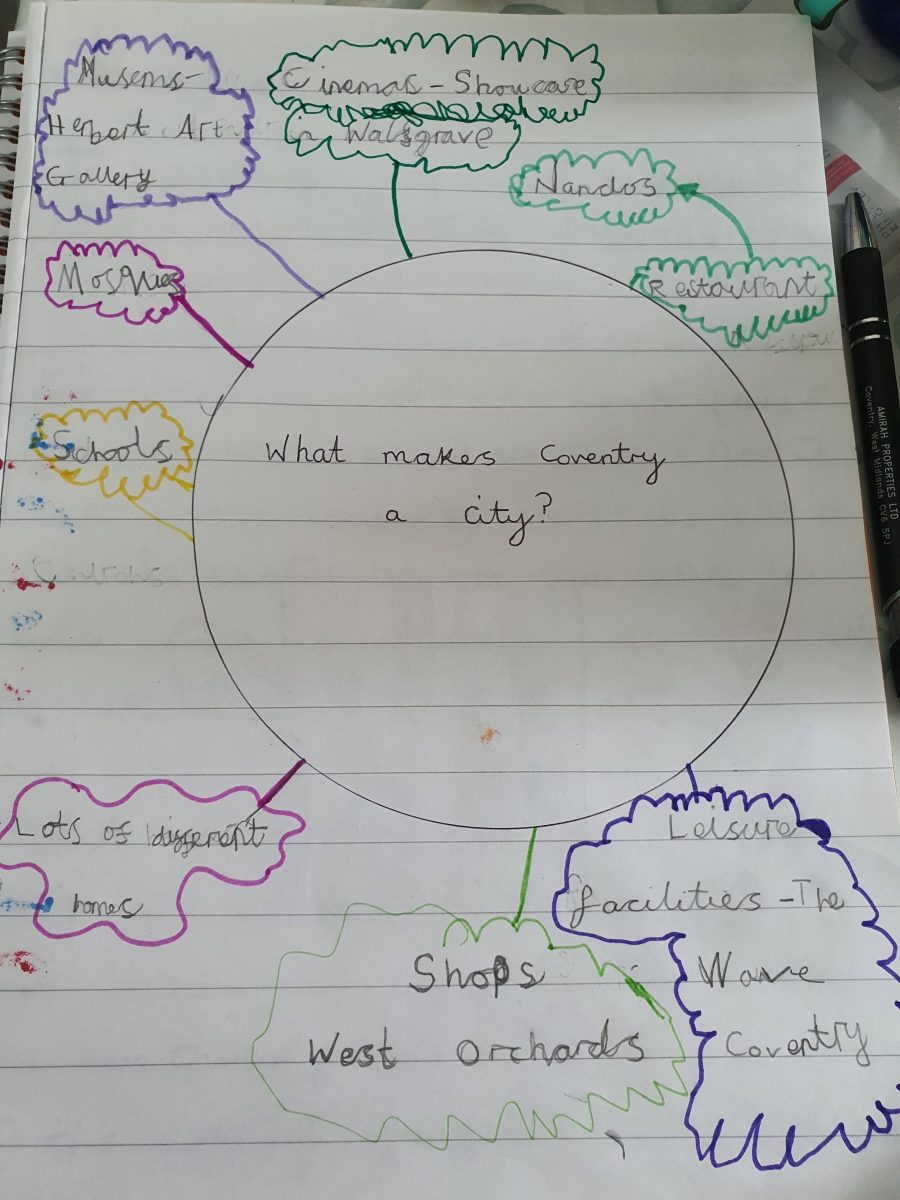 Musems-
Herbert Art
Gallery
Cinemas - Showcase
in Walsgrave
Nandos
Restaurant
Mosques
Schools
What makes Coventry
a city?
Lots of different
homes
Shops
West Orchards
Leisure
facilities - The
Wave
Coventry
AMIRAH PROPERTIES LTD
Coventry, West Midlands CV6 5PJ